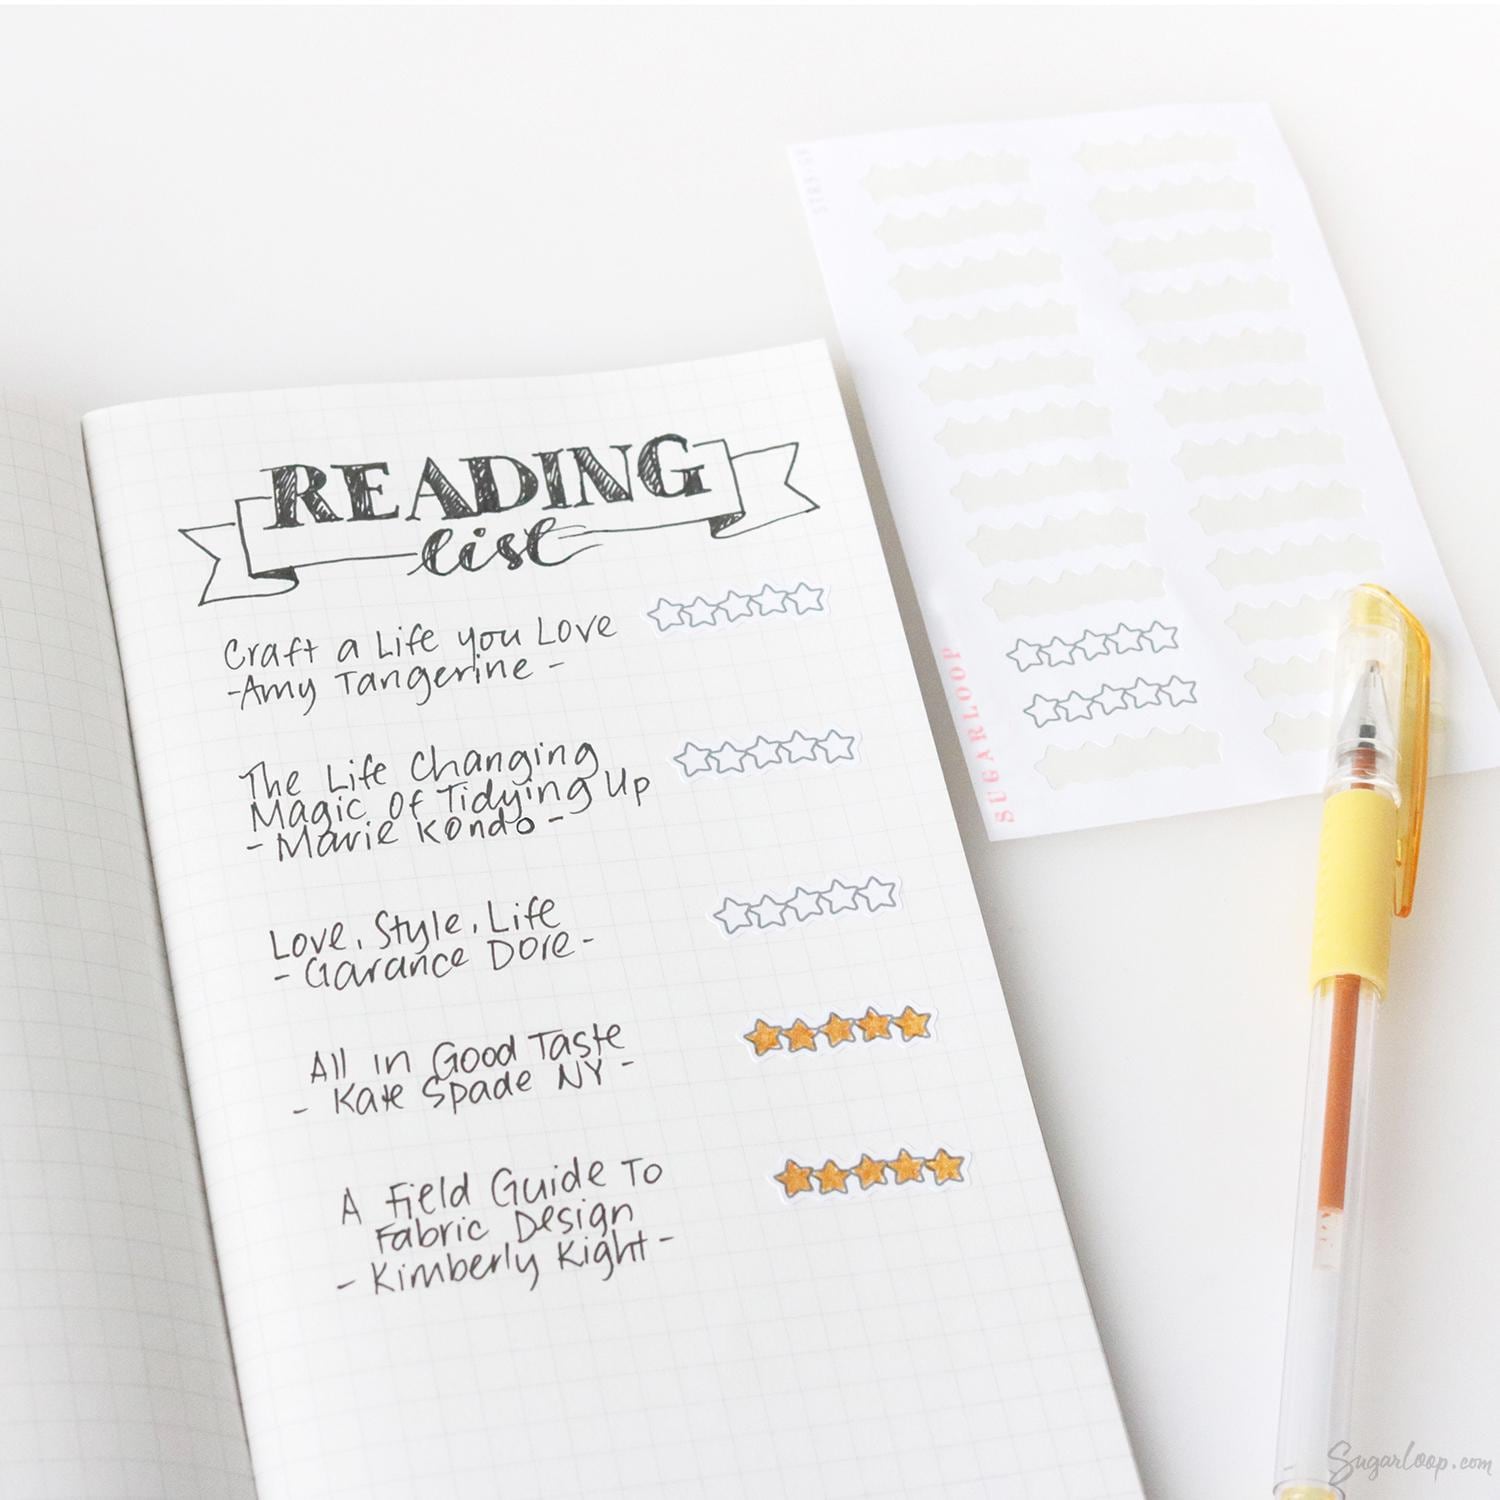 READING
list
Craft a Life you Love
-Amy Tangerine -
The Life Changing
Magic Of Tidying Up
- Marie Kondo -
Love, Style, Life
- Garance Dore -
All in Good Taste
- Kate Spade NY -
A Field Guide To
Fabric Design
- Kimberly Kight -
SUGARLOOP
Sugarloop.com